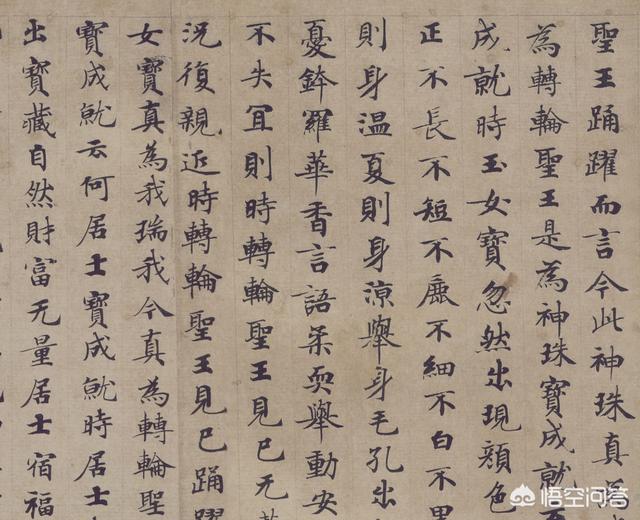 聖王踊躍而言今此神珠真為
為轉輪聖王是為神珠寶成就
成就時玉女寶忽然出現顏色
正不長不短不麁不細不白不黑
則身温夏則身涼舉身毛孔出
憂鉢羅華香言語柔耎舉動安
不失冝則時轉輪聖王見已无
況復親近時轉輪聖王見已踊躍
女寶真為我瑞我今真為轉輪聖
寶成就云何居士寶成就時居士
出寶藏自然財富无量居士宿福
悟空问答